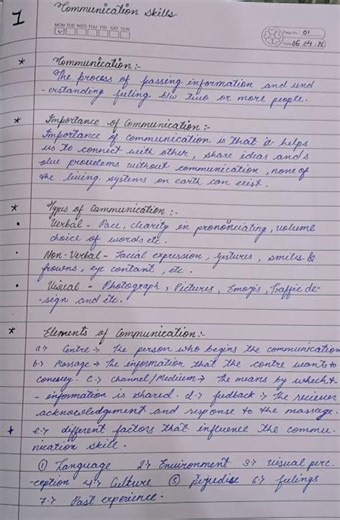 1
Communication Skills
MON TUE WED THU FRI SAT SUN
Page No. 01
Date 06 04
* Communication :-
The process of passing information and und
-erstanding feeling b/w two or more people.
* Importance of Communication :-
Importance of communication is that it helps
us to connect with other, share ideas and s
olve problems without communication, none of
the living systems on earth can exist.
* Types of Communication :-
• Verbal - Pace, clarity in pronounciating, volume
choice of words etc.
• Non-Verbal - Facial expression, gestures, smiles &
frowns, eye contant, etc.
• Visual - Photograph, Pictures, Emojis, Traffic de-
-sign and etc.
* Elements of Communication :-
a→ Centre → The person who begins the communication
b→ Massage → The information that the centre wants to
convey. C→ channel/Medium → The means by which
- information is shared. d→ fudback → The reciever
acknowledgement and response to the massage.
* e→ different factors that influence the commu-
nication skill.
① Language 2→ Environment 3→ visual perc.
-ception 4→ Culture ⑤ Prejudise 6→ feelings
7→ Past experience.